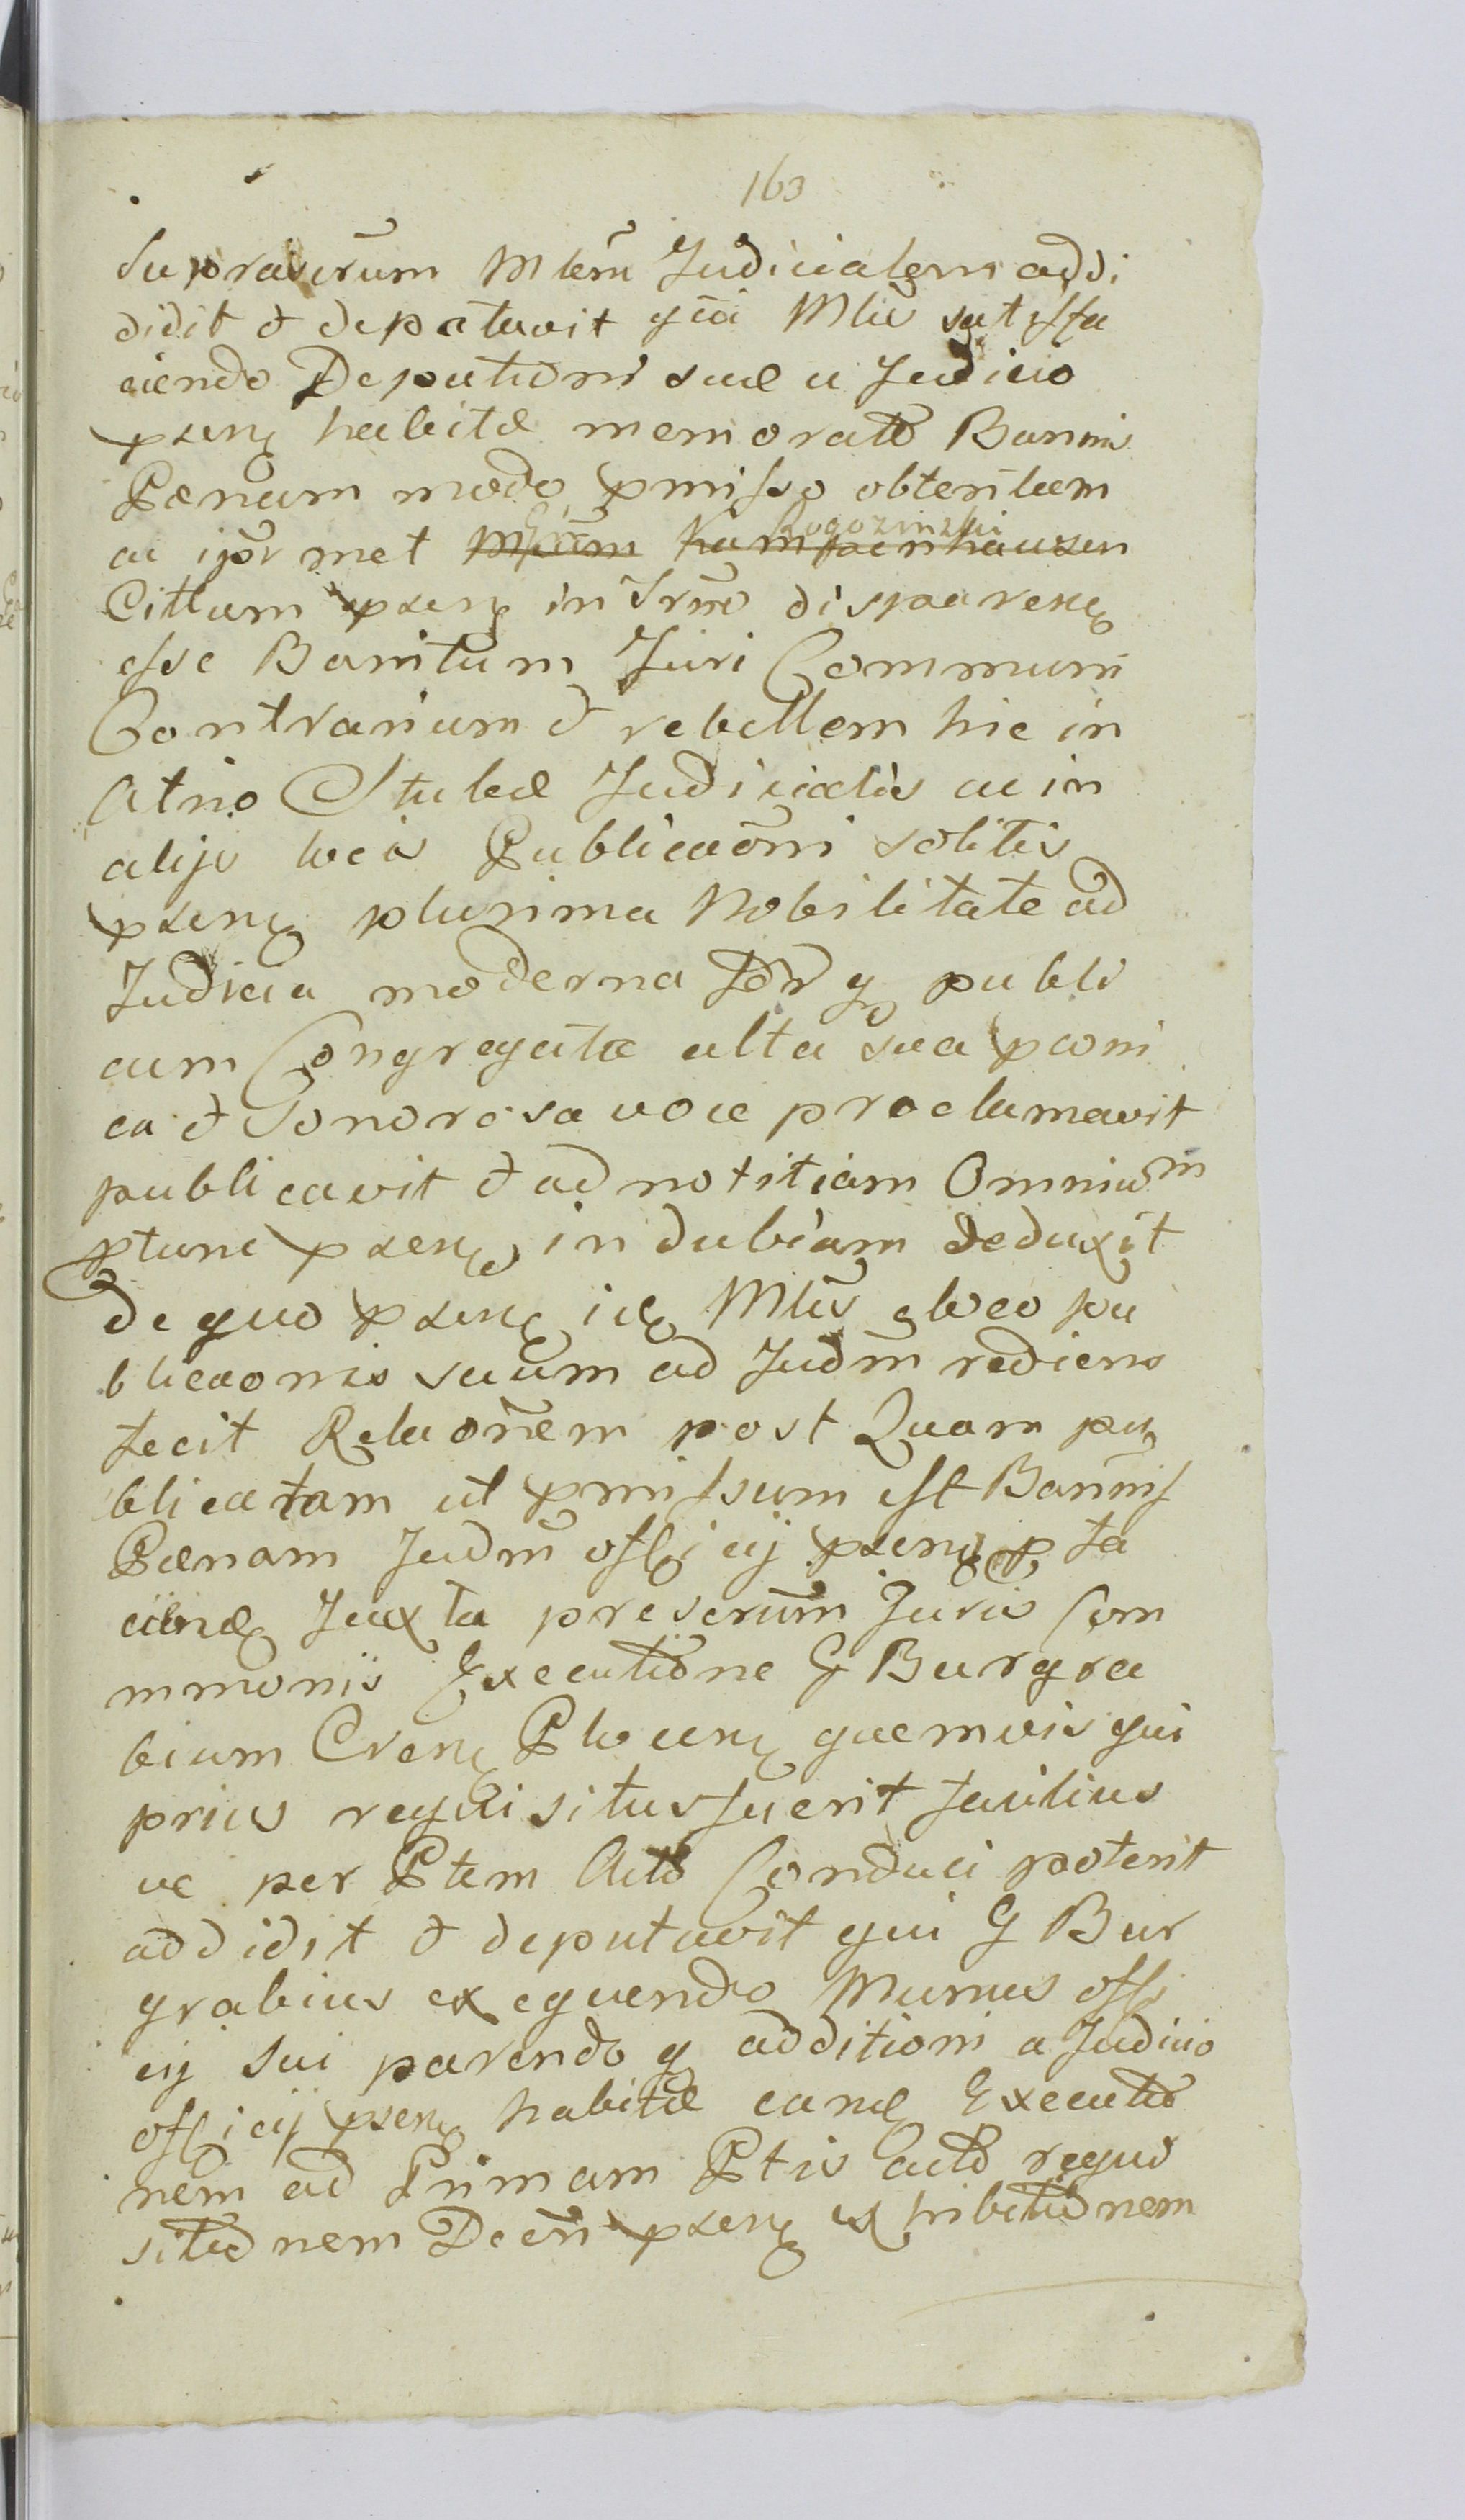 163
Suprascrum Mlem Judicialem addi
didit et deputavit qui Mlis satisfa
ciendo Deputationi suæ a Judicio
psen habitæ memorato Banni
Pænam modo pmisso obtentam
ac ipr met Rogozinski
Mgcum Kampenhausen
Cittum psen in Trno disparen
esse Banitum Juri Communi
Contrarium et rebellem hic in
Atrio Stubæ Judicialis ac in
alijs locis Publicaoni solitis
psen plurima Nobilitate ad
Judicia moderna q publi
cum Congregata alta sua
ca et Sonorosa voce proclamavit
publicavit et ad notitiam Omnium
ptunc psen indubiam deduxit
de quo psen id Mlis e loco pu
blicaonis suum ad Judm rediens
fecit Relaonem post Quam pu
blicatam ut pmissum est Bannis
Pænam Judm officij psen p fa
ciend Juxta prescrum Juris Com
mmonis Executione G Burgra
bium Cren Plocen quemvis qui
prius requisitus fuerit facilius
ve per Ptem Acto Conduci poterit
addidit et deputavit qui G Bur
grabius exequendo Munus offi
cij sui parendo q additioni a Judicio
officij psen habitæ eand Executio
nem ad Primam Ptis acto requi
sitionem Decri psen exhibitionem